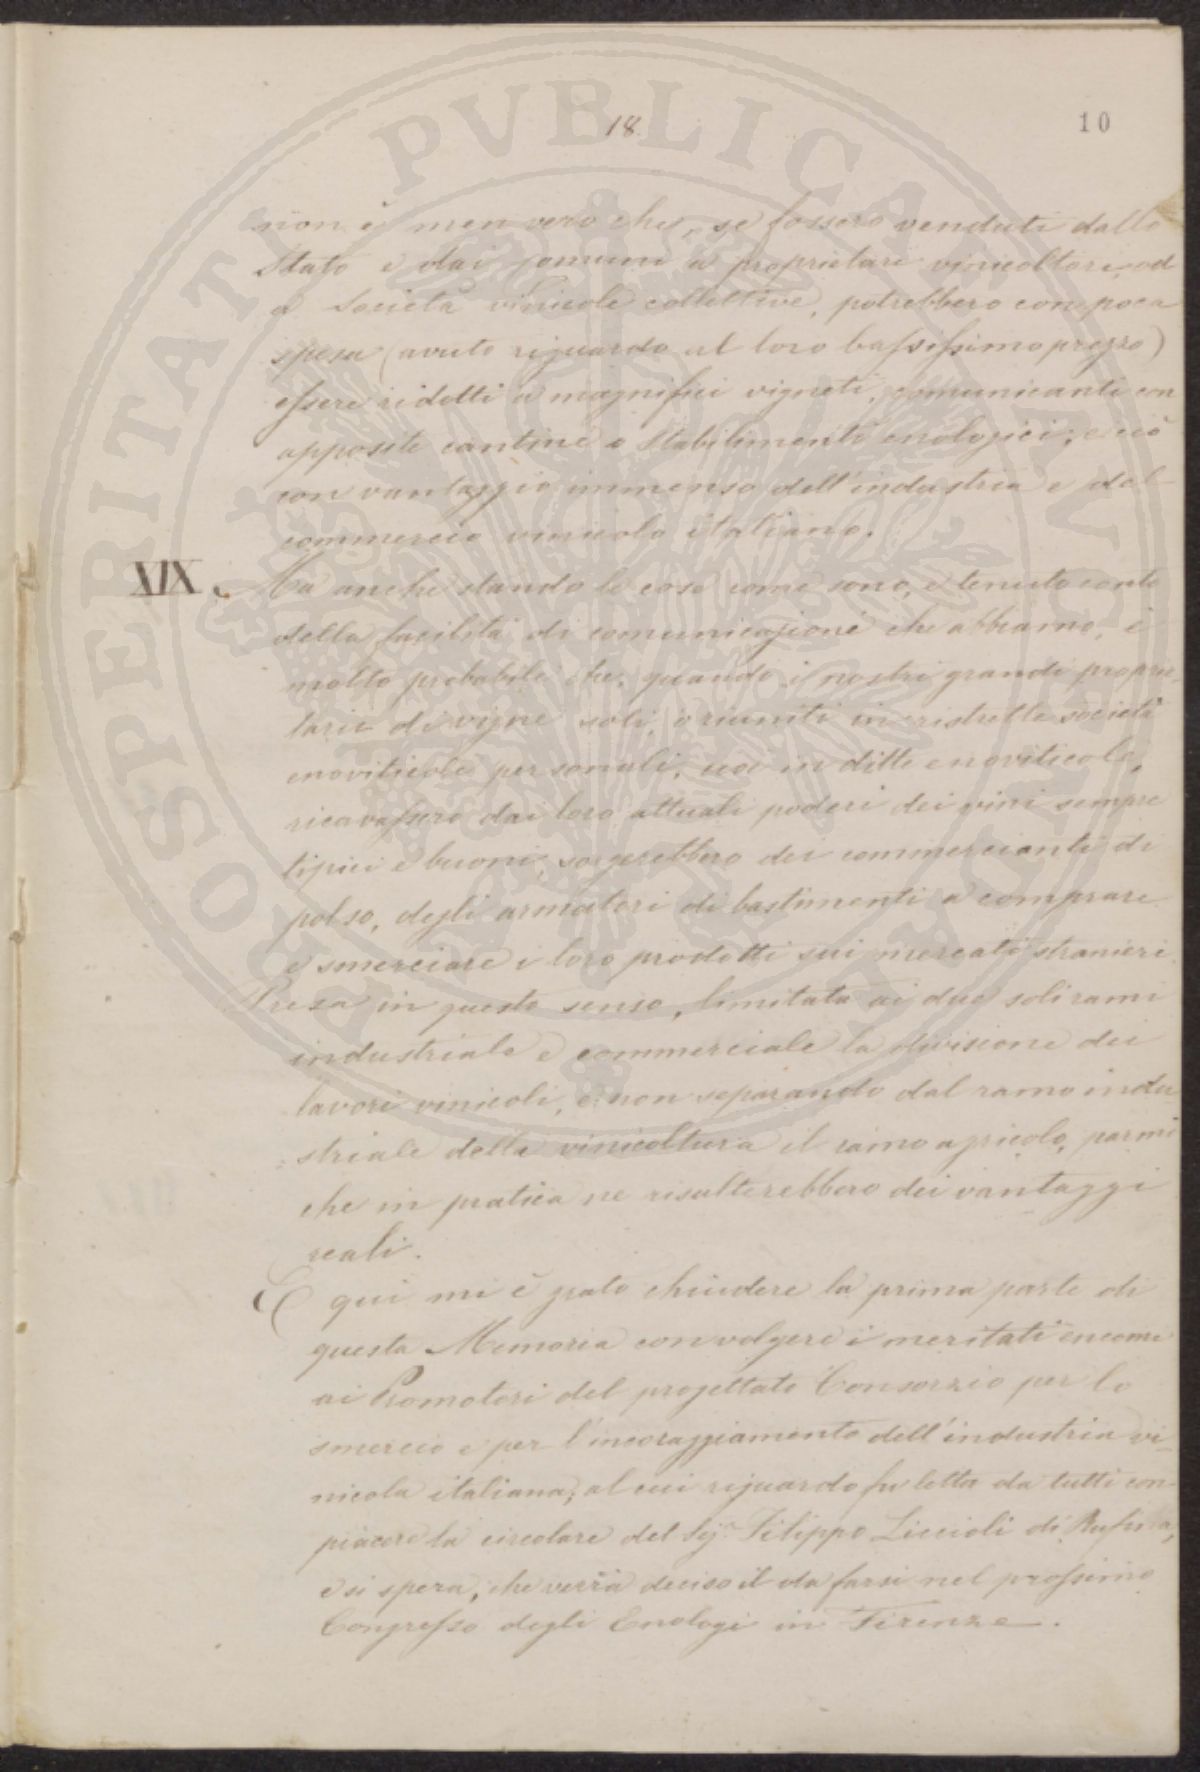 18
10
non è men vero che, se fossero venduti dallo
Stato e dai Comuni a proprietari vinicoltori, od
a Società vinicole collettive, potrebbero con poca
spesa (avuto riguardo al loro bassissimo prezzo)
essere ridotti a magnifici vigneti, comunicanti con
apposite cantine o Stabilimenti enologici; e ciò
con vantaggio immenso dell'industria e del
commercio vinicolo italiano.
XIX. Ma anche stando le cose come sono, e tenuto conto
della facilità di comunicazione che abbiamo, è
molto probabile che, quando i nostri grandi proprie-
tarii di vigne soli, o riuniti in ristrette società
enoviticole personali, ossia in ditte enoviticole,
ricavassero dai loro attuali poderi dei vini sempre
tipici e buoni, sorgerebbero dei commercianti di
polso, degli armatori di bastimenti a comprare
e smerciare i loro prodotti sui mercati stranieri.
Presa in questo senso, limitata ai due soli rami
industriale e commerciale la divisione dei
lavori vinicoli, e non separando dal ramo indu
striale della vinicoltura il ramo agricolo, parmi
che in pratica ne risulterebbero dei vantaggi
reali.
E qui mi è grato chiudere la prima parte di
questa Memoria con volgere i meritati encomi
ai Promotori del progettato Consorzio per lo
smercio e per l'incoraggiamento dell'industria vi-
nicola italiana; al cui riguardo fu letta da tutti con
piacere la circolare del Sig. Filippo Liccioli di Rufina,
e si spera, che verrà deciso il da farsi nel prossimo
Congresso degli Enologi in Firenze.
PROSPERITATI PVBLICAE AVGENDAE